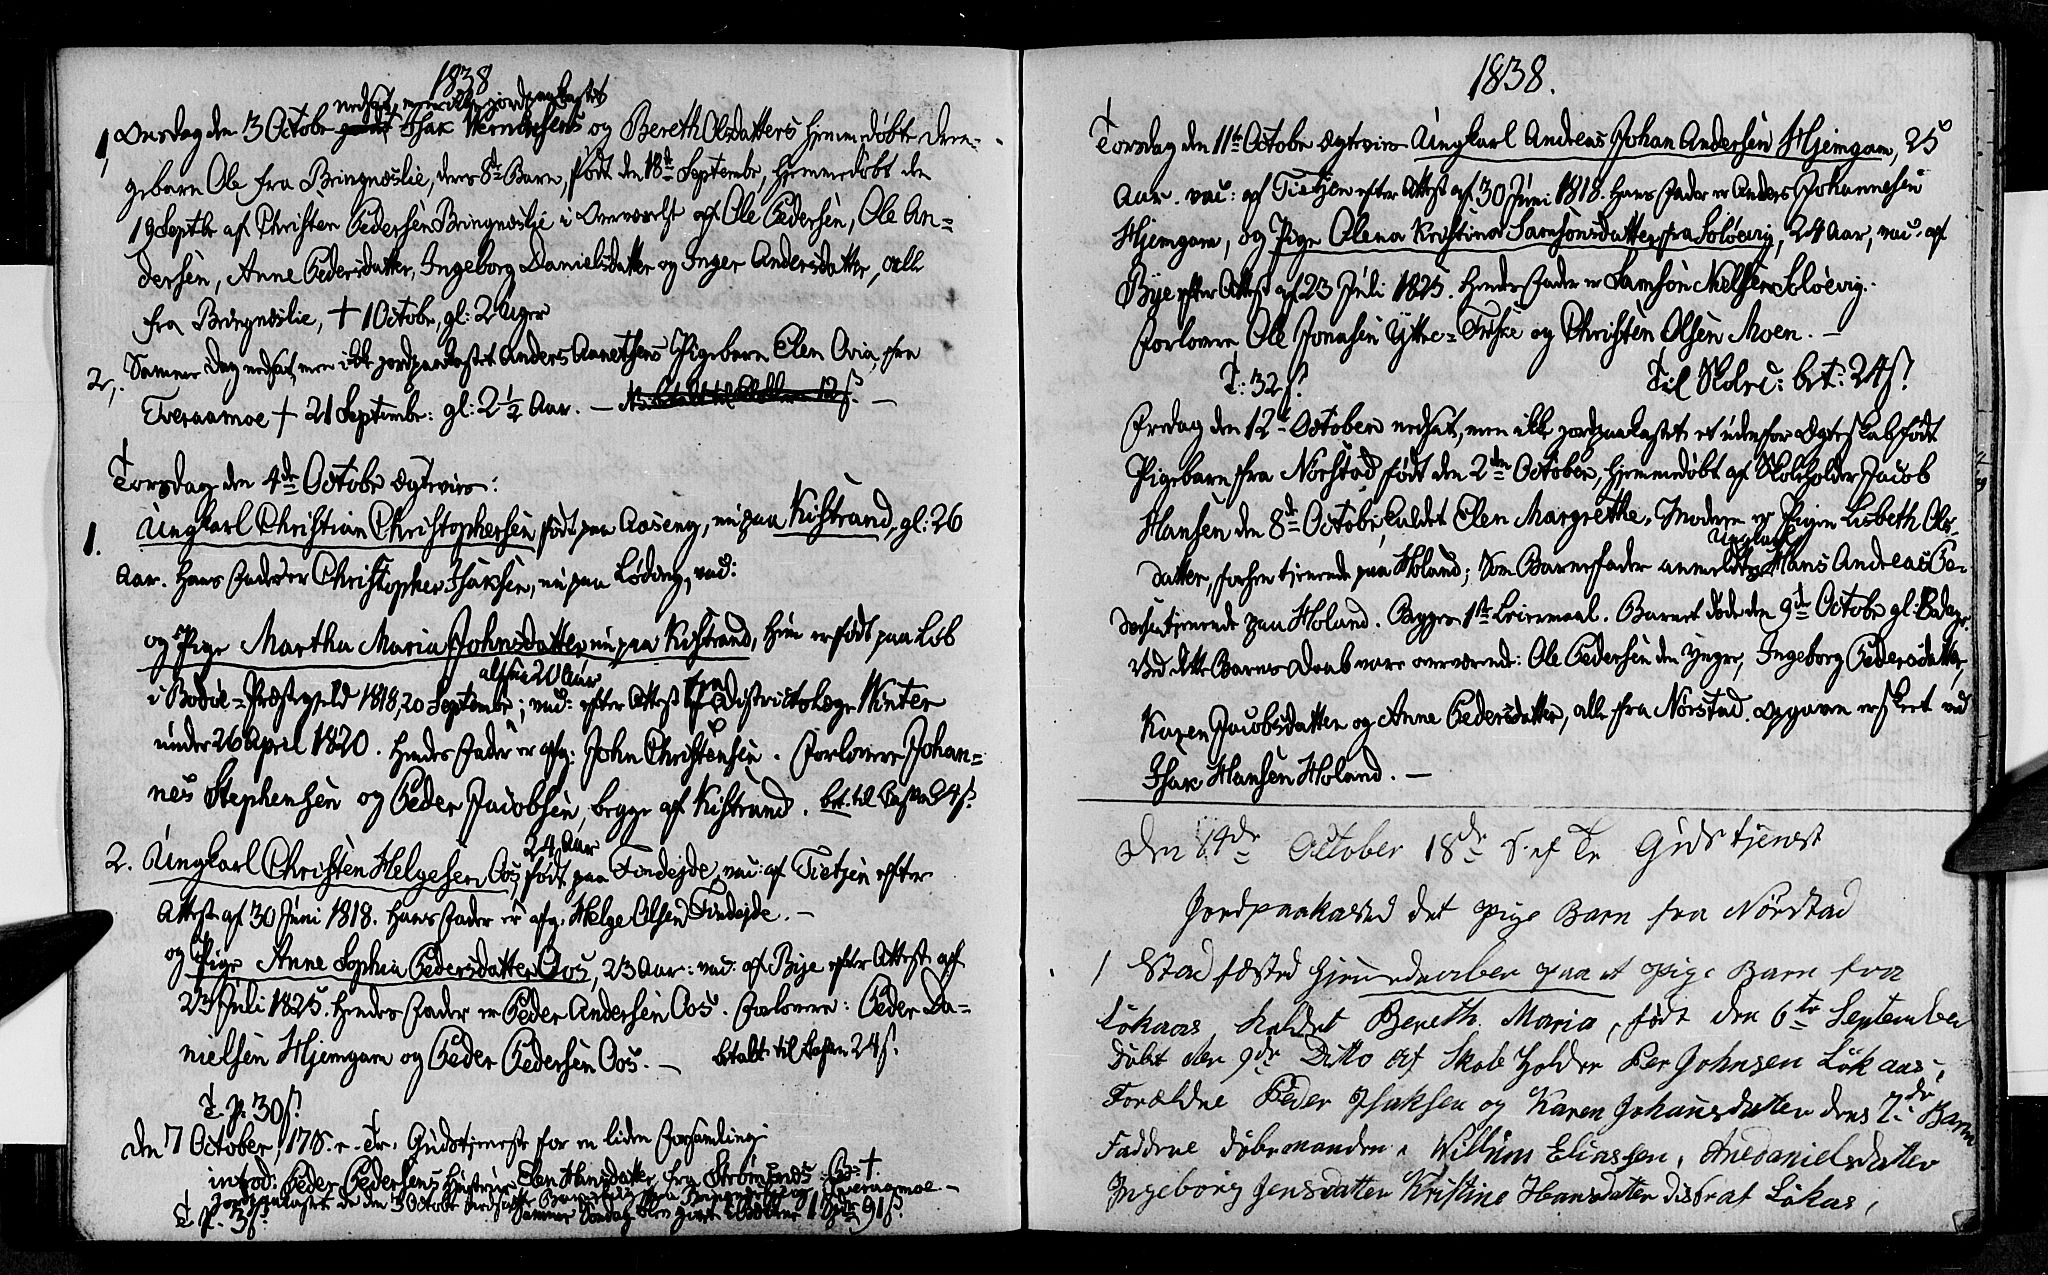 1838
nedsat, men ikke jordpaakastet
1, Onsdag den 3 Octobr Isak Wernersens og Bereth Olsdatters hjemmedøbte Dren-
gebarn Ole fra Bringnæslie, deres 8de Barn, født den 18de Septembr, hjemmedøbt den
19 Septbr af Christen Pedersen Bringneslie i Overværelse af Ole Pedersen, Ole An-
dersen, Anne Pedersdatter, Ingeborg Danielsdatter og Inger Andersdatter, alle
fra Bringneslie, + 1 Octobr, gl: 2 Uger
2, Samme Dag nedsat, men ikke jordpaakastet Anders Anethsens Pigebarn Elen Ovia, fra
Tveraamoe + 21 Septembr: gl: 2 1/2 Aar. —
Torsdag den 4de Octobr ægtevies:
1. Ungkarl Christian Christophersen født paa Aaseng, nu paa Kistrand, gl: 26
Aar. Hans Fader er Christopher Isaksen, nu paa Løding, vac:
og Pige Martha Maria Johnsdatter nu paa Kistrand, hun er født paa Løb
altsaa 20 Aar
i Bodøe-Præstegjeld 1818, 20 Septembr; vac: efter Attest fra Districtslæge Winter
under 26 April 1820. Hendes Fader er afg: John Christensen. Forlovere Johan-
nes Stephensen og Peder Jacobsen, begge af Kistrand. bet. til 24 s.
24 Aar
2. Ungkarl Christen Helgesen Oos, født paa Findejde, vac: af Tietzen efter
Attest af 30 Juni 1818. Hans Fader er afg. Helge Olsen Findejde. —
og Pige Anne Sophia Pedersdatter Oos, 23 Aar: vac: af Bye efter Attest af
23 Juli 1825. Hendes Fader er Peder Andersen Oos. Forlovere: Peder Da-
nielsen Hjemgam og Peder Pedersen Oos. — betalt til 24 s.
T. P. 30 s.
Den 7 October, 17 S. e. Tr. Gudstjeneste for en liden Forsamling
introd: Peder Pedersens Hustrue Elen Hansdatter fra Strømsnæs
Jordpaakastet de den 3 Octobr fra Bringneslie og Tveraamoe —
T. P. 3 s. Samme Søndag blev givet i 1 Spd 91 s.
1838.
Torsdag den 11te Octobr ægtevies Ungkarl Andreas Johan Andersen Hjemgam, 25
Aar. vac: af Tietzen efter Attest af 30 Juni 1818. Hans Fader er Anders Johannesen
Hjemgam, og Pige Olena Kristina Samsonsdatter fra Soløevig, 24 Aar, vac. af
Bye efter Attest af 23 Juli 1825. Hendes Fader er Samson Nielsen Soløevig.
Forlovere Ole Jonasen Yttre-Friske og Christen Olsen Moen. —
T: 32 s. Til Skolec: bet: 24 s.
Fredag den 12te October nedsat, men ikke jordpaakastet et udenfor Ægteskab født
Pigebarn fra Nørstad født den 2den October, hjemmedøbt af Skoleholder Jacob
Hansen den 8de Octobr, kaldet Elen Margrethe. Moderen er Pigen Lisbeth Ols-
Ungkarl
datter, forhen tjenende paa Holand; Som Barnefader anmeldtes Hans Andreas Pe-
dersen tjenende paa Holand. Begges 1ste Leiermaal. Barnet døde den 9de Octobr gl: 8 dage.
Ved dette Barns Daab vare overværende: Ole Pedersen den yngre, Ingeborg Pedersdatter,
Karen Jacobsdatter og Anne Pedersdatter, alle fra Nørstad. Opgaven er skeet ved
Isak Hansen Holand. —
Den 14de October 18de S. ef Tr Gudstjenest
Jordpaakasted det pige Barn fra Nørstad
1 Stadfæsted Hjemedaaben paa et pige Barn fra
Lökaas, kaldet Bereth Maria, født den 6te September
Døbt den 9de Ditto af Skoleholder Per Johnsen Lökaas,
Forældre Peder Isaksen og Karen Johansdatter deres 2de Barn
Faddere Døbemanden, Willum Eliassen, Ane Danielsdatter
Ingeborg Jensdatter Kristine Hansdatter disse af Lökas,